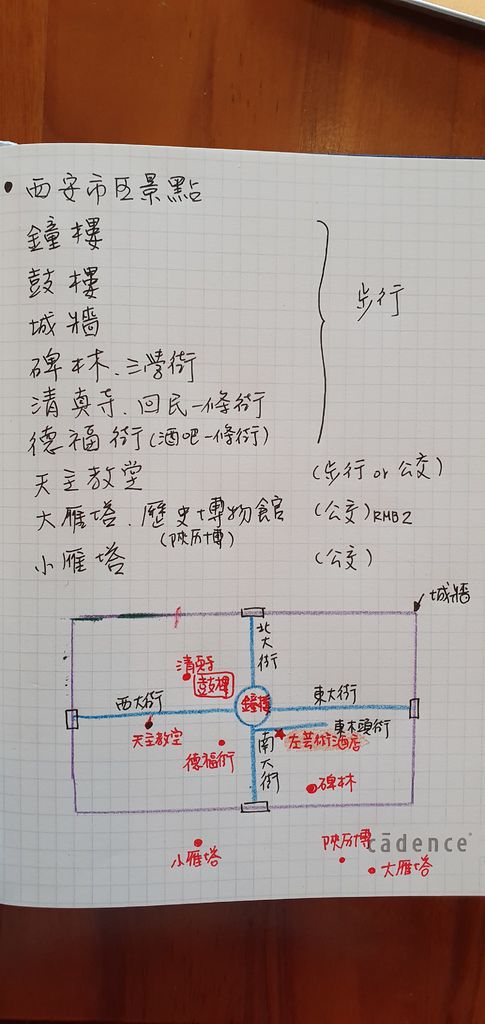 • 西安市区景點
鐘樓
鼓樓
城牆
碑林、三學街
清真寺、回民一條街
德福街(酒吧一條街)
步行
天主教堂 (步行 or 公交)
大雁塔、歷史博物館 (公交) RMB2
(陝历博)
小雁塔 (公交)
城牆
北大街
清真寺
鼓樓
西大街
鐘樓
東大街
天主教堂
東木頭街
德福街
南大街
左芸術酒店
碑林
小雁塔
陝历博
cādence
大雁塔